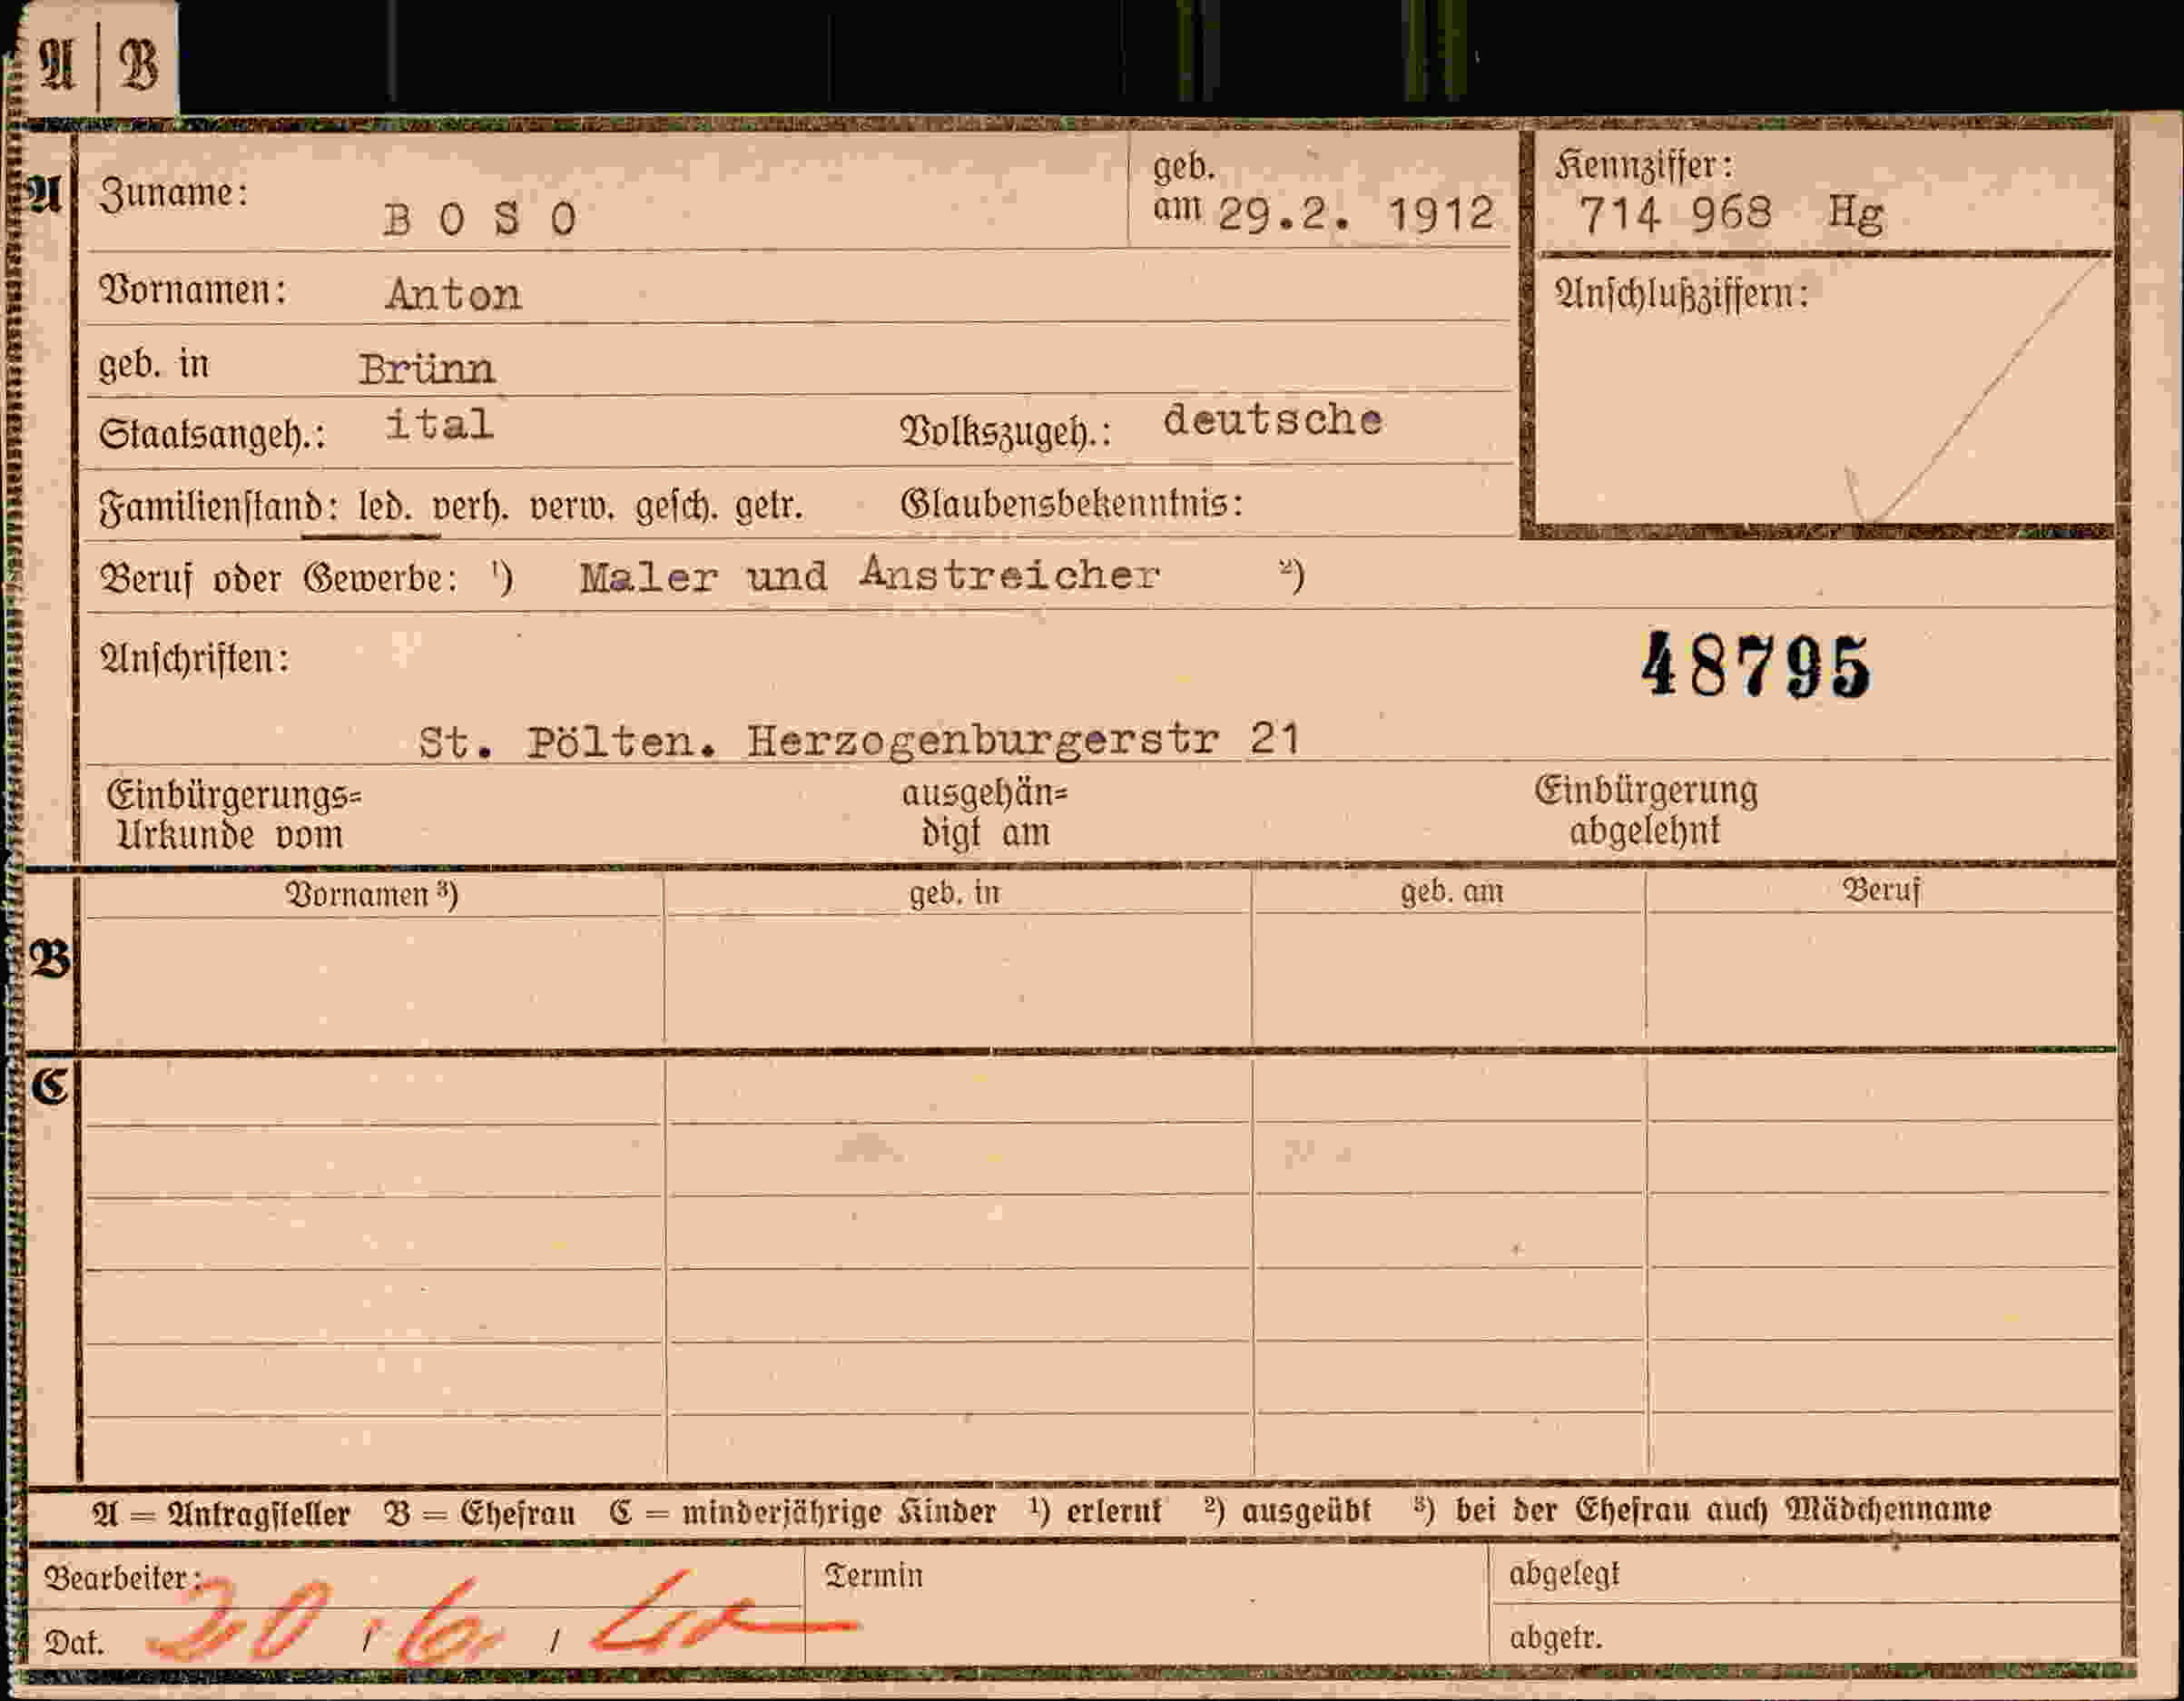 A | B
A
Zuname: BOSO
geb. am 29.2. 1912
Kennziffer: 714 968 Hg
Vornamen: Anton
Anschlußziffern:
geb. in Brünn
Staatsangeh.: ital Volkszugeh.: deutsche
Familienstand: led. verh. verw. gesch. getr. Glaubensbekenntnis:
Beruf oder Gewerbe: ¹) Maler und Anstreicher ²)
Anschriften:
48795
St. Pölten. Herzogenburgerstr 21
Einbürgerungs= ausgehän= Einbürgerung
Urkunde vom digt am abgelehnt
Vornamen ³) geb. in geb. am Beruf
B
C
A = Antragsteller B = Ehefrau C = minderjährige Kinder ¹) erlernt ²) ausgeübt ³) bei der Ehefrau auch Mädchenname
Bearbeiter: Termin abgelegt
Dat. 20 / 6. / abgetr.